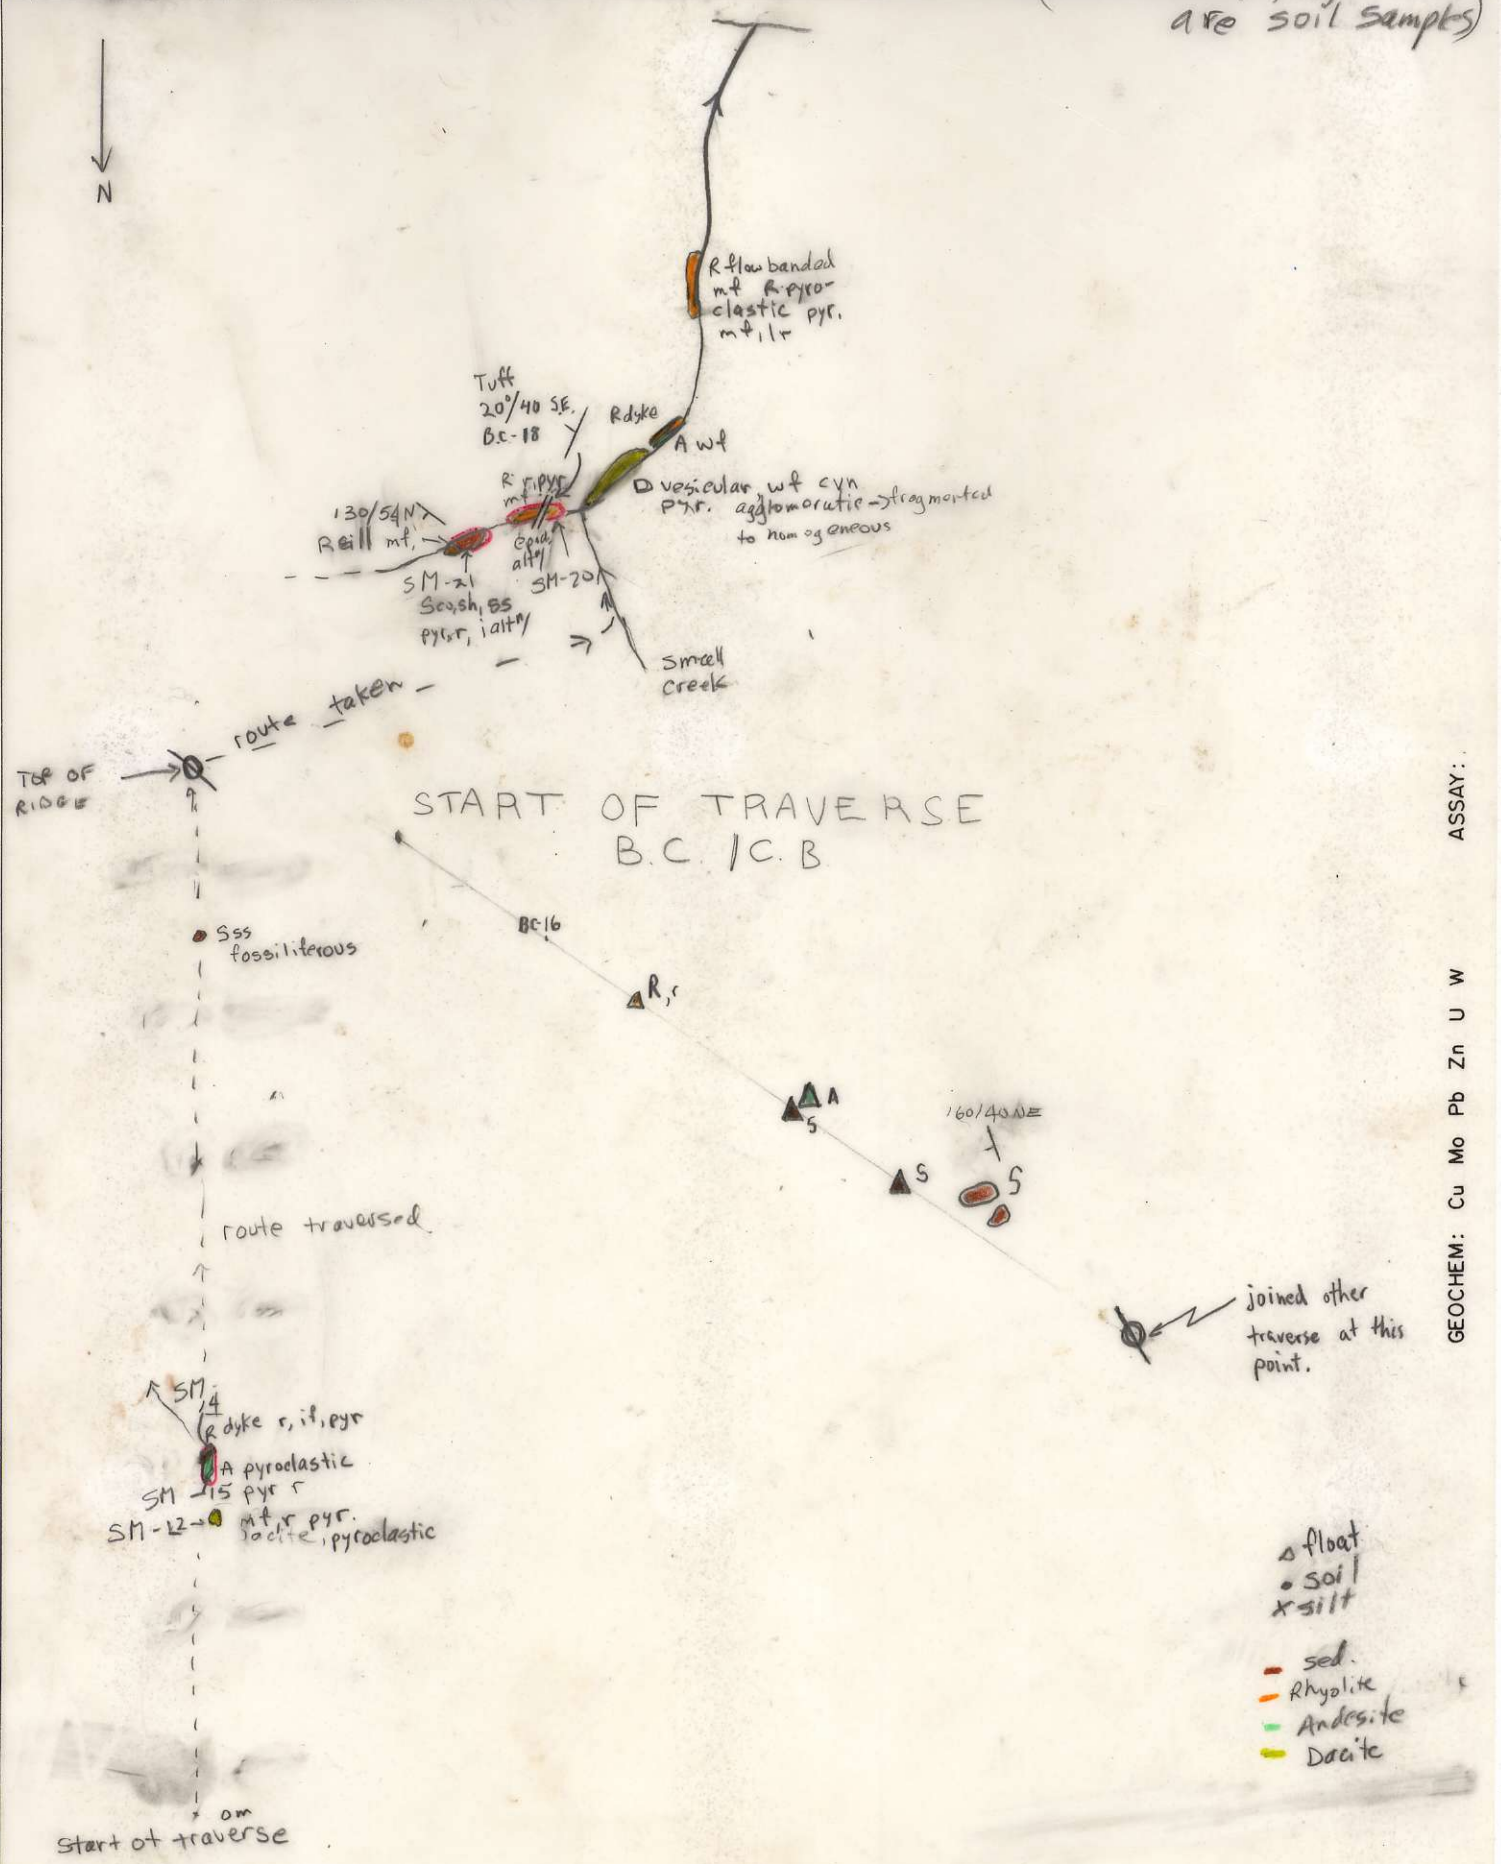 are soil samples)
N
R flow banded
mf R. pyro-
clastic pyr.
mf, lr
Tuff
20°/40 S.E.
B.C-18
R dyke
A wf
R r, pyr
mf
D vesicular, wf cyn
pyr. agglomoratic -> fragmented
to homogeneous
130/54N
R sill mf,
epid.
altⁿ
SM-20
SM-21
Sco, sh, ss
pyr, r, i altⁿ
small
creek
route taken
TOP OF
RIDGE
START OF TRAVERSE
B.C. / C.B
BC-16
Sss
fossiliferous
R, r
A
S
160/40 NE
S
S
route traversed
joined other
traverse at this
point.
SM
14
R dyke r, if, pyr
A pyroclastic
SM - 15 pyr r
SM-12 mf, r pyr.
dacite, pyroclastic
float
soil
x silt
sed.
Rhyolite
Andesite
Dacite
0m
Start of traverse
GEOCHEM: Cu Mo Pb Zn U W ASSAY: